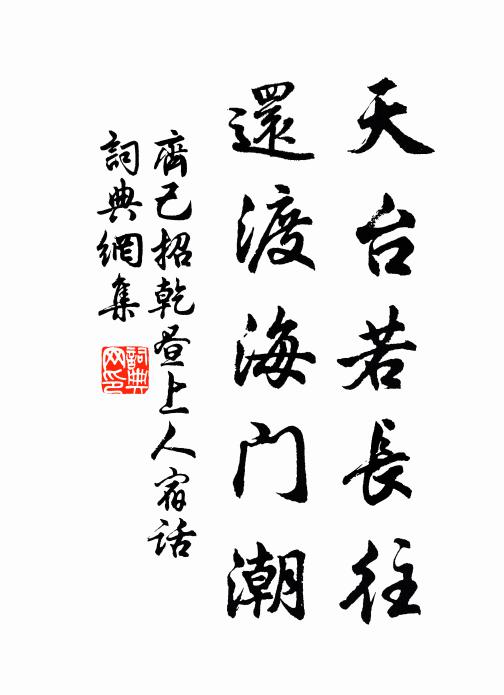 天台若長往
還渡海門潮
齊己招乾晝上人宿話
詞典網集
詞典网印